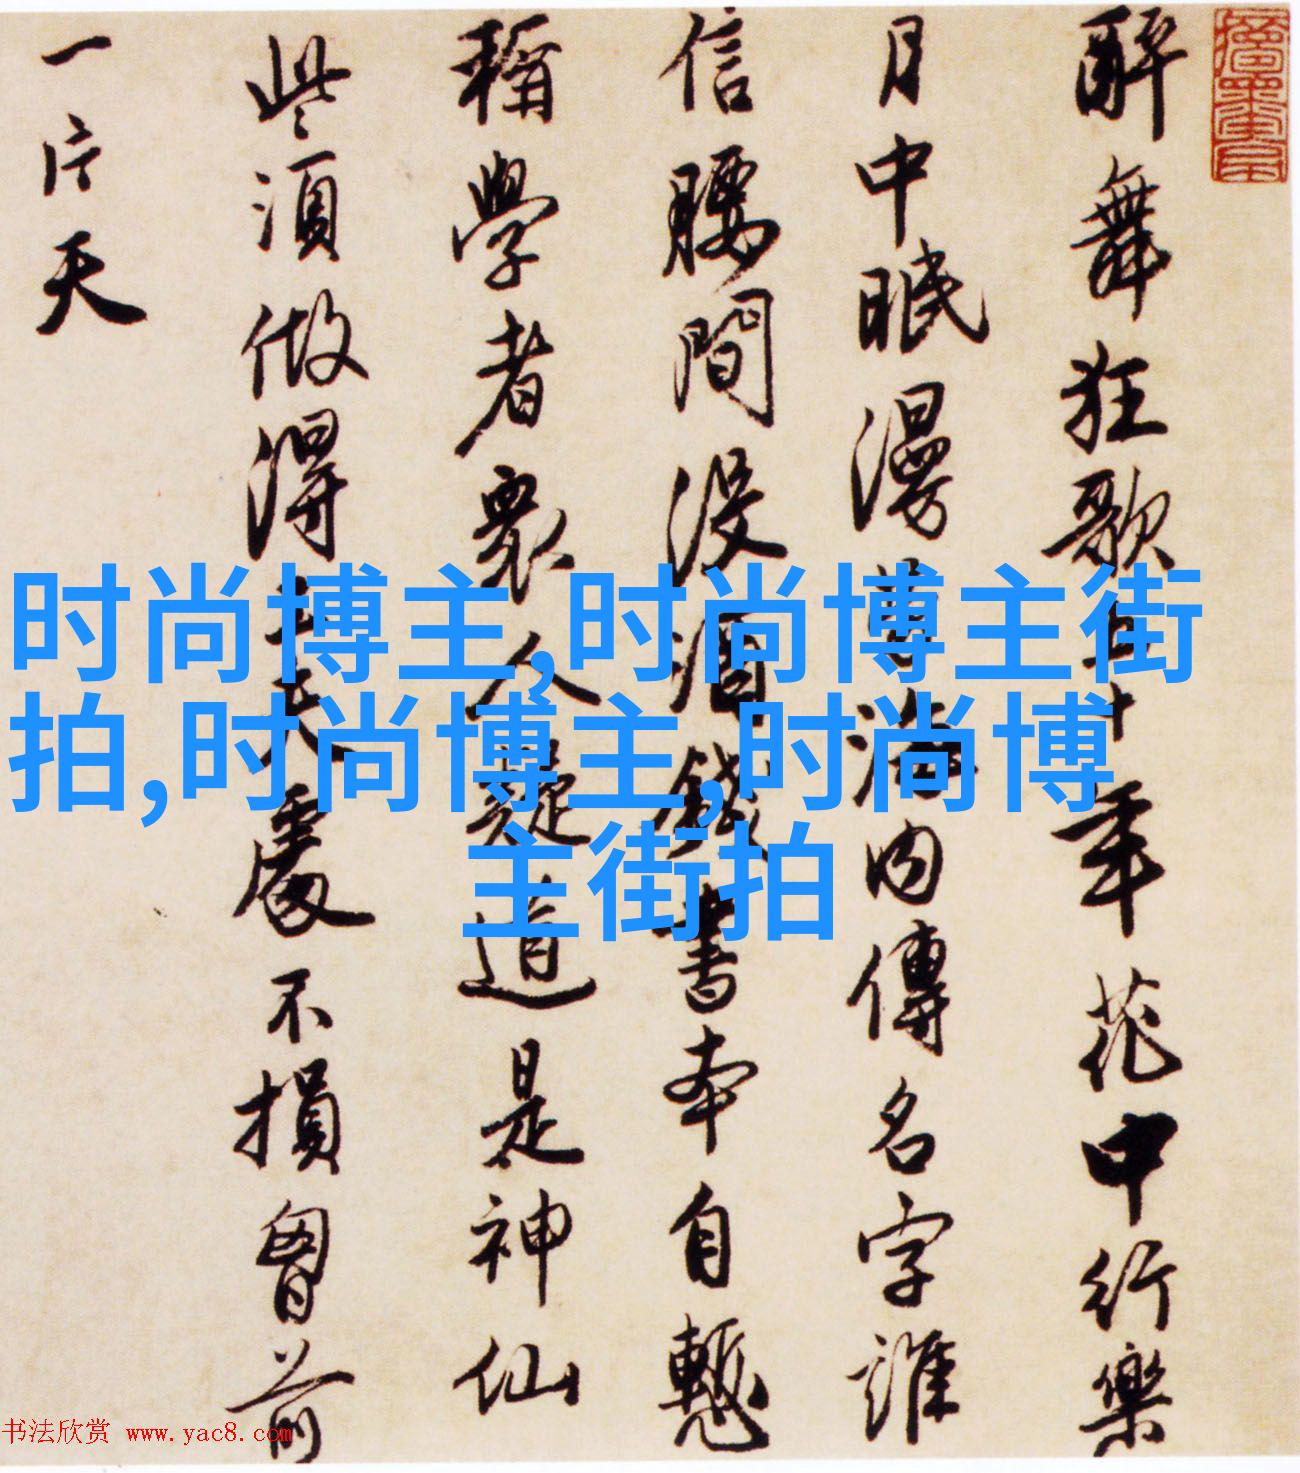 醉舞狂歌五十年花中行樂
月中眠漫勞海内傳名字誰
信腰間没酒錢書本自慙
稱學者衆人疑道是神仙
些須做得工夫處不損胷前
一片天
时尚博主,时尚博主街
拍,时尚博主,时尚博
主街拍
书法欣赏 www.yac8.com